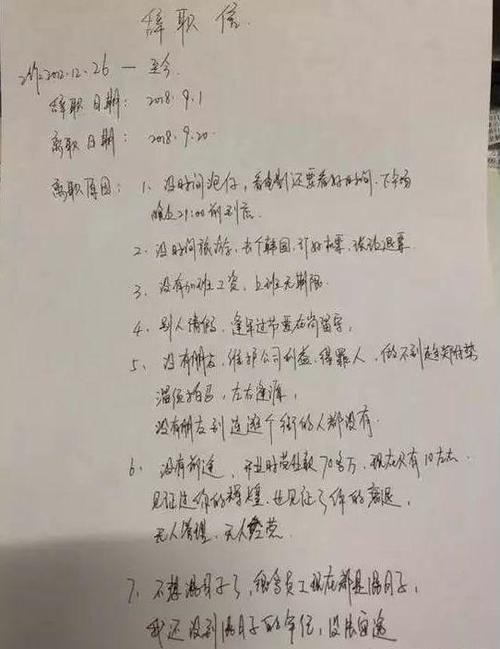 辞职信
2012.12.26 — 至今
辞职日期: 2018.9.1
离职日期: 2018.9.20
离职原因: 1、没时间泡仔,看电影还要看好时间,下午场
晚上21:00前到店
2、没时间旅游,去个韩国,订好机票,被迫退票
3、没有加班工资,上班无期限
4、别人请假,逢年过节要在岗留守,
5、没有朋友,维护公司利益,得罪人,做不到
溜须拍马,左右逢源,
没有朋友到连逛个街的人都没有.
6、没有前途,开业时营业额70多万,现在只有10左右
见证过你的辉煌,也见证了你的衰退,
无人管理,无人经营
7、不想混日子了,很多员工现在都是混日子,
我还没到混日子的年纪,没法留这